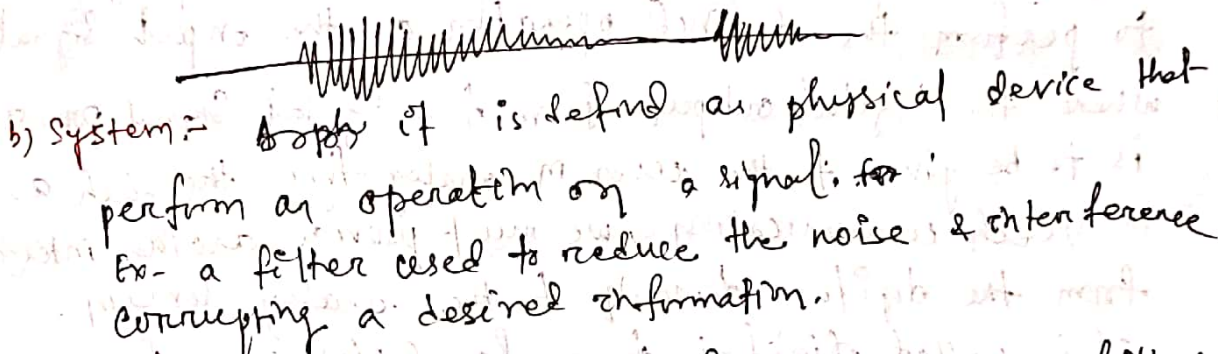 b) System:- it is defind as physical device that
perform an operation on a signal.
Ex- a filter used to reduce the noise & interference
corrupting a desired information.